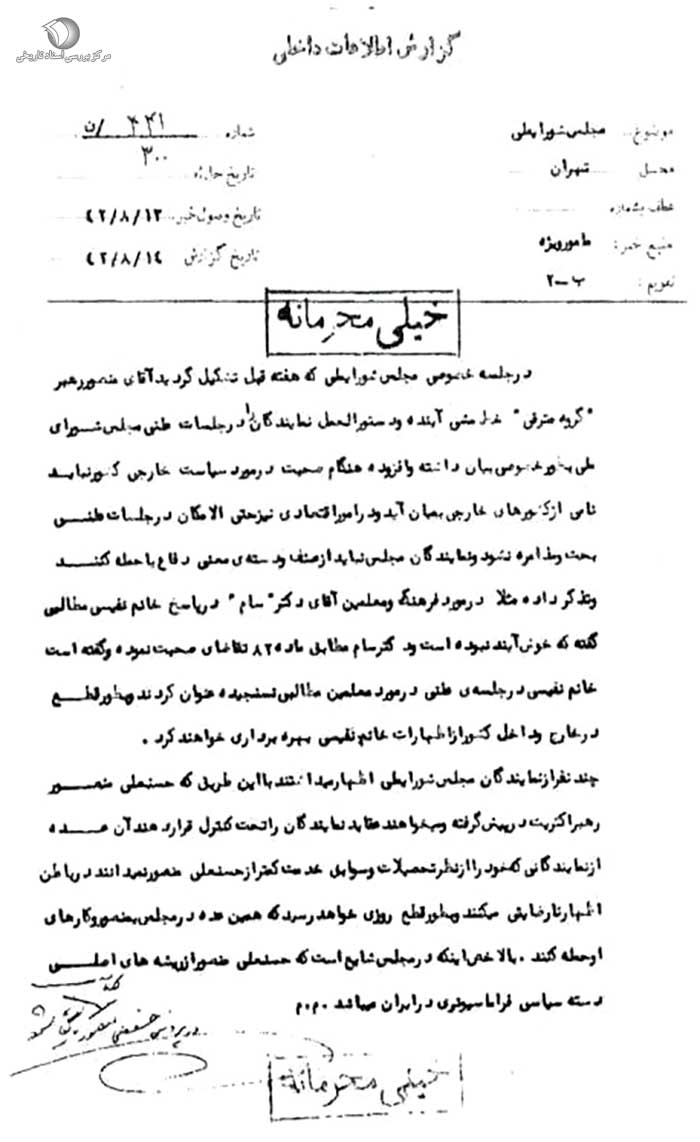 مرکز بررسی اسناد تاریخی
گزارش اطلاعات داخلی
موضوع: مجلس شورایملی
شماره ۴۴۱ /ن
۳۰۰
محل تهران
تاریخ حادثه
عطف بشماره
تاریخ وصول خبر ۴۲/۸/۱۳
منبع خبر: مامور ویژه
تاریخ گزارش ۴۲/۸/۱۴
تقویم: ب-۲
خیلی محرمانه
در جلسه خصوصی مجلس شورایملی که هفته قبل تشکیل گردید آقای منصور رهبر
"گروه مترقی" خط مشی آینده و دستورالعمل نمایندگان را در جلسات علنی مجلس شورای
ملی بطور خصوصی بیان داشته و افزوده هنگام صحبت در مورد سیاست خارجی کشور نباید
نامی از کشورهای خارجی بمیان آید و در امور اقتصادی نیز حتی الامکان در جلسات علنی
بحث و مذاکره نشود و نمایندگان مجلس نباید از صنف و دسته‌ی معنی دفاع یا حمله کنند
و تذکر داده مثلا در مورد فرهنگ و معلمین آقای دکتر "سام" در پاسخ خانم نفیسی مطالبی
گفته که خوش آیند نبوده است و دکتر سام مطابق ماده ۸۲ تقاضای صحبت نموده و گفته است
خانم نفیسی در جلسه‌ی علنی در مورد معلمین مطالبی نسنجیده عنوان کردند و بطور قطع
در خارج و داخل کشور از اظهارات خانم نفیسی بهره برداری خواهند کرد .
چند نفر از نمایندگان مجلس شورایملی اظهار میداشتند با این طریق که حسنعلی منصور
رهبر اکثریت در پیش گرفته و میخواهند عقاید نمایندگان را تحت کنترل قرار دهند آن عده
از نمایندگانی که خود را از نظر تحصیلات و سوابق خدمت کمتر از حسنعلی منصور نمیدانند در باطن
اظهار نارضایتی میکنند و بطور قطع روزی خواهد رسید که همین عده در مجلس بمنصور و کارهای
او حمله کنند . بالاخص اینکه در مجلس شایع است که حسنعلی منصور از ریشه های اصلی
دسته سیاسی فراماسونری در ایران میباشد .م.م
در پرونده حسنعلی منصور بایگانی شود
خیلی محرمانه